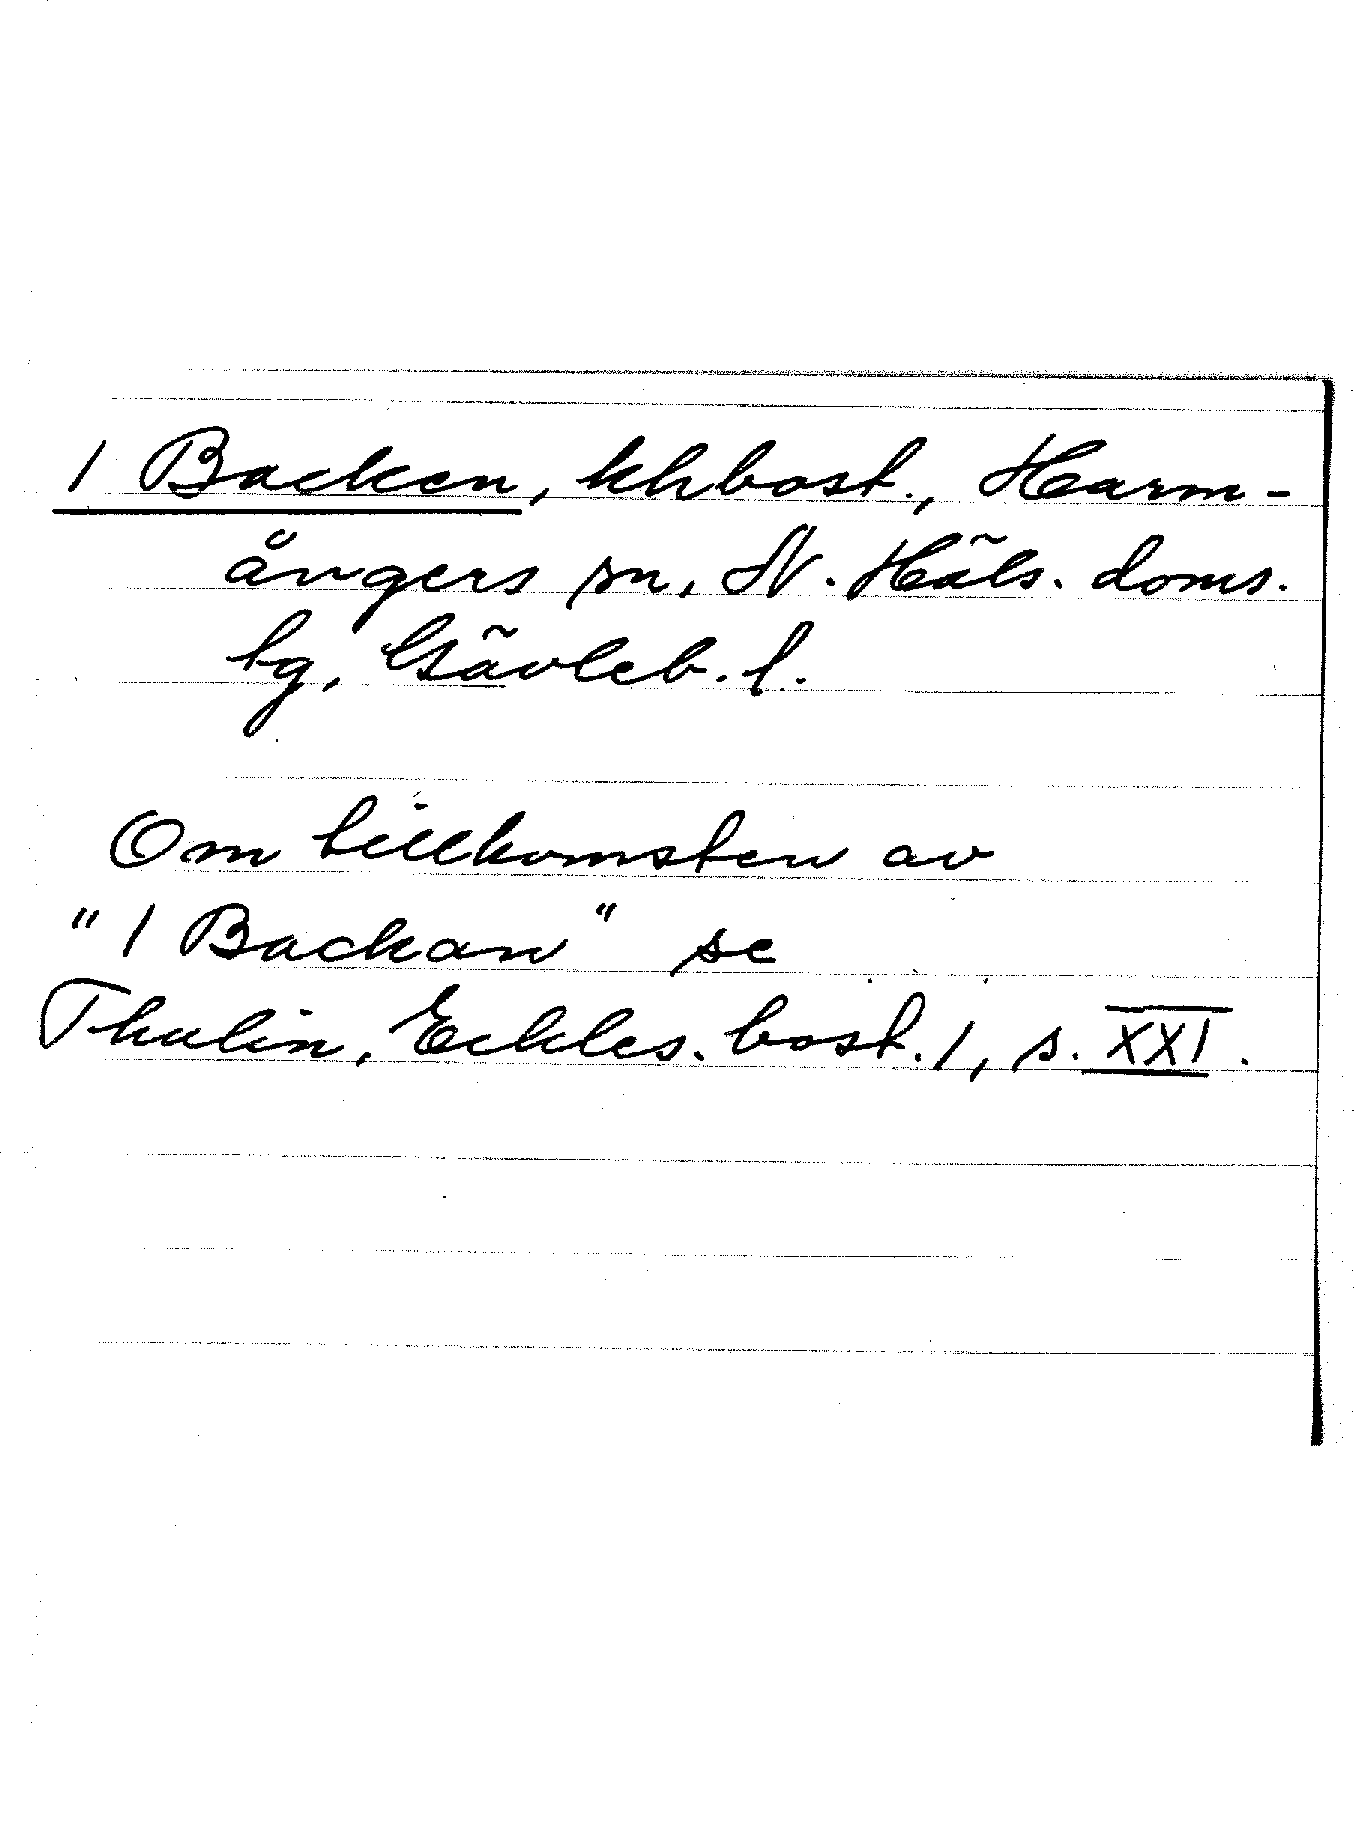 I Backen, khbost., Harm-
ångers sn, N. Häls. doms.
tg, Gävleb. l.
Om tillkomsten av
"I Backan" se
Thulin, Eckles. bost. I, s. XXI.